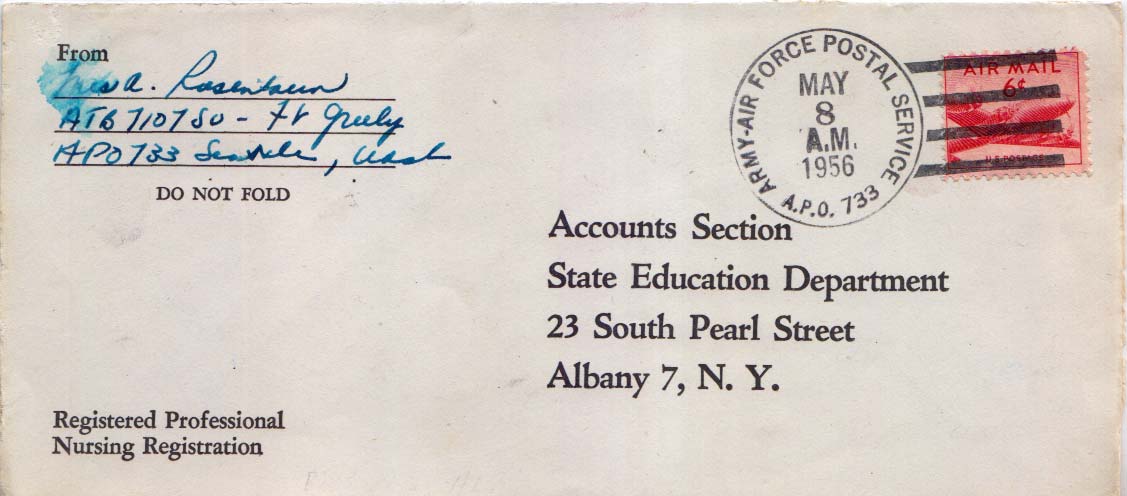 From
Mrs A. Rosenbaum
ATB 7107 SU - Ft Greely
APO 733 Seattle, Wash
DO NOT FOLD
ARMY-AIR FORCE POSTAL SERVICE
MAY
8
A.M.
1956
A.P.O. 733
AIR MAIL
6¢
U.S. POSTAGE
Accounts Section
State Education Department
23 South Pearl Street
Albany 7, N. Y.
Registered Professional
Nursing Registration